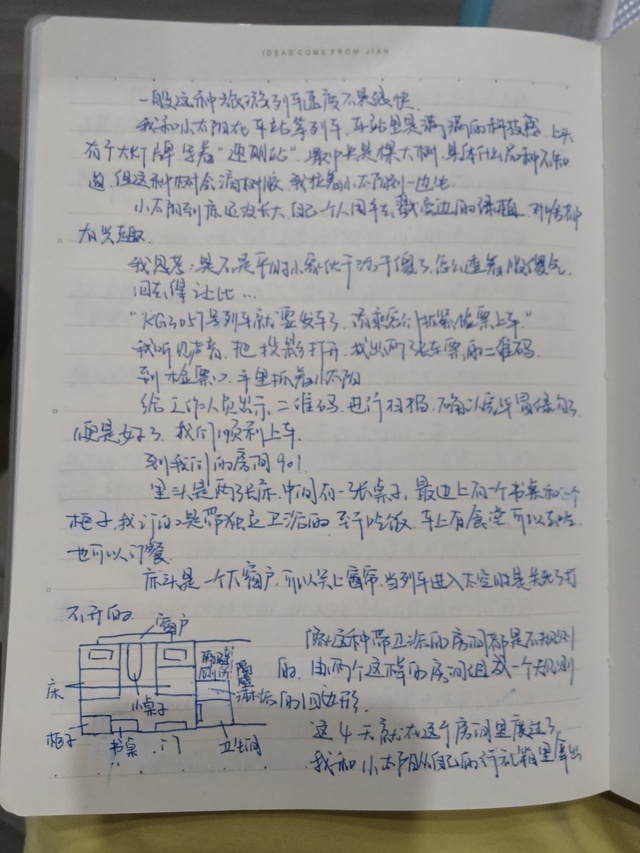 IDEAS COME FROM JIAN
一般这种旅游列车速度不是很快.
我和小太阳在车站等列车,车站里是满满的科技感,上头
有个大灯牌,写着"逐明站",最中央是棵大树,具体什么品种不知
道,但这种树会滴树胶,我拉着小太阳到一边比
小太阳到底还没长大,自己一个人用手去戳旁边的绿植,对啥都
有兴趣.
我思考:是不是平时小家伙干活干傻了,怎么透着股傻气,
回去得让比...
"KG3057号列车就要发车了,请乘客们抓紧检票上车"
我听见声音,把投影打开,找出两张车票的二维码.
到检票口,手里抓着小太阳
给工作人员出示二维码,进行扫描,确认完毕
便是好了,我们顺利上车.
到我们的房间901.
里头是两张床,中间有一张桌子,最边上有一个书桌和一个
柜子,我订的是带独立卫浴的,至于吃饭,车上有食堂可以去吃
也可以订餐.
床头是一个大窗户,可以关上窗帘,当列车进入太空时是关死了打
不开的.
窗户
床
小桌子
柜子
书桌
门
卫生间
淋浴
这种带卫浴的房间都是不规则
的,由两个这样的房间组成一个大规则
的四边形.
这4天就在这个房间里度过了,
我和小太阳从自己的行礼箱里拿出